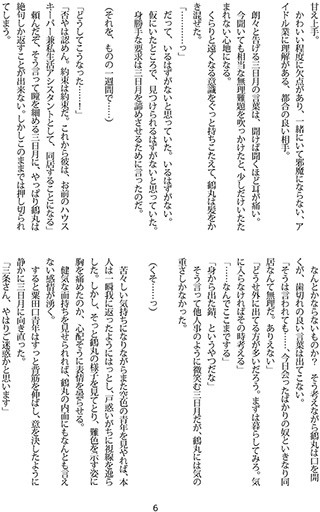 甘え上手。
かわいい程度に欠点があり、一緒にいて邪魔にならない、ア
イドル業に理解がある、都合の良い相手。
朗々と告げる三日月の言葉は、聞けば聞くほど耳が痛い。
今聞いても相当な無理難題を吹っかけたと、少しだけいたた
まれない心地になる。
くらりと遠くなる意識をぐっと持ちこたえて、鶴丸は髪をか
き混ぜた。
「………っ」
だって、いるはずがないと思っていた。いるはずがない。
仮にいたところで、見つけられるはずがないと思っていた。
身勝手な要求は三日月を諦めさせるために言ったのだ。
（それを、ものの一週間で……）
「どうしてこうなった………！」
「否やは認めん。約束は約束だ。これから彼は、お前のハウス
キーパー兼私生活アシスタントとして、同居することになる」
頼んだぞ、そう言って瞳を細める三日月に、やっぱり鶴丸は
絶句しか返すことが出来ない。しかしこのままでは押し切られ
てしまう。
なんとかならないものか？　そう考えながら鶴丸は口を開
くが、歯切れの良い言葉は出てこない。
「そうは言われても……、今日会ったばかりの奴といきなり同
居なんて無理だ。ありえない」
「どうせ外に出てる方が多いだろう。まずは暮らしてみろ。気
に入らなければその時考える」
「……なんでここまでする」
「身から出た錆、というやつだな」
そう言って他人事のように微笑む三日月だが、鶴丸には気の
重さしかなかった。
（くそ……っ）
苦々しい気持ちになりながらまた空色の青年を見やれば、本
人は一瞬我に返ったようにはっとし、戸惑いがちに視線を逸ら
した。しかし、そっと鶴丸の様子を見てとり、難色を示す姿に
胸を痛めたのか、心配そうに表情を曇らせる。
健気な面持ちを見せられれば、鶴丸の内面にもなんとも言え
ない感情が湧く。
すると粟田口青年はすっと背筋を伸ばし、意を決したように
静かに三日月に向き直った。
「三条さん、やはりご迷惑かと思います」
6